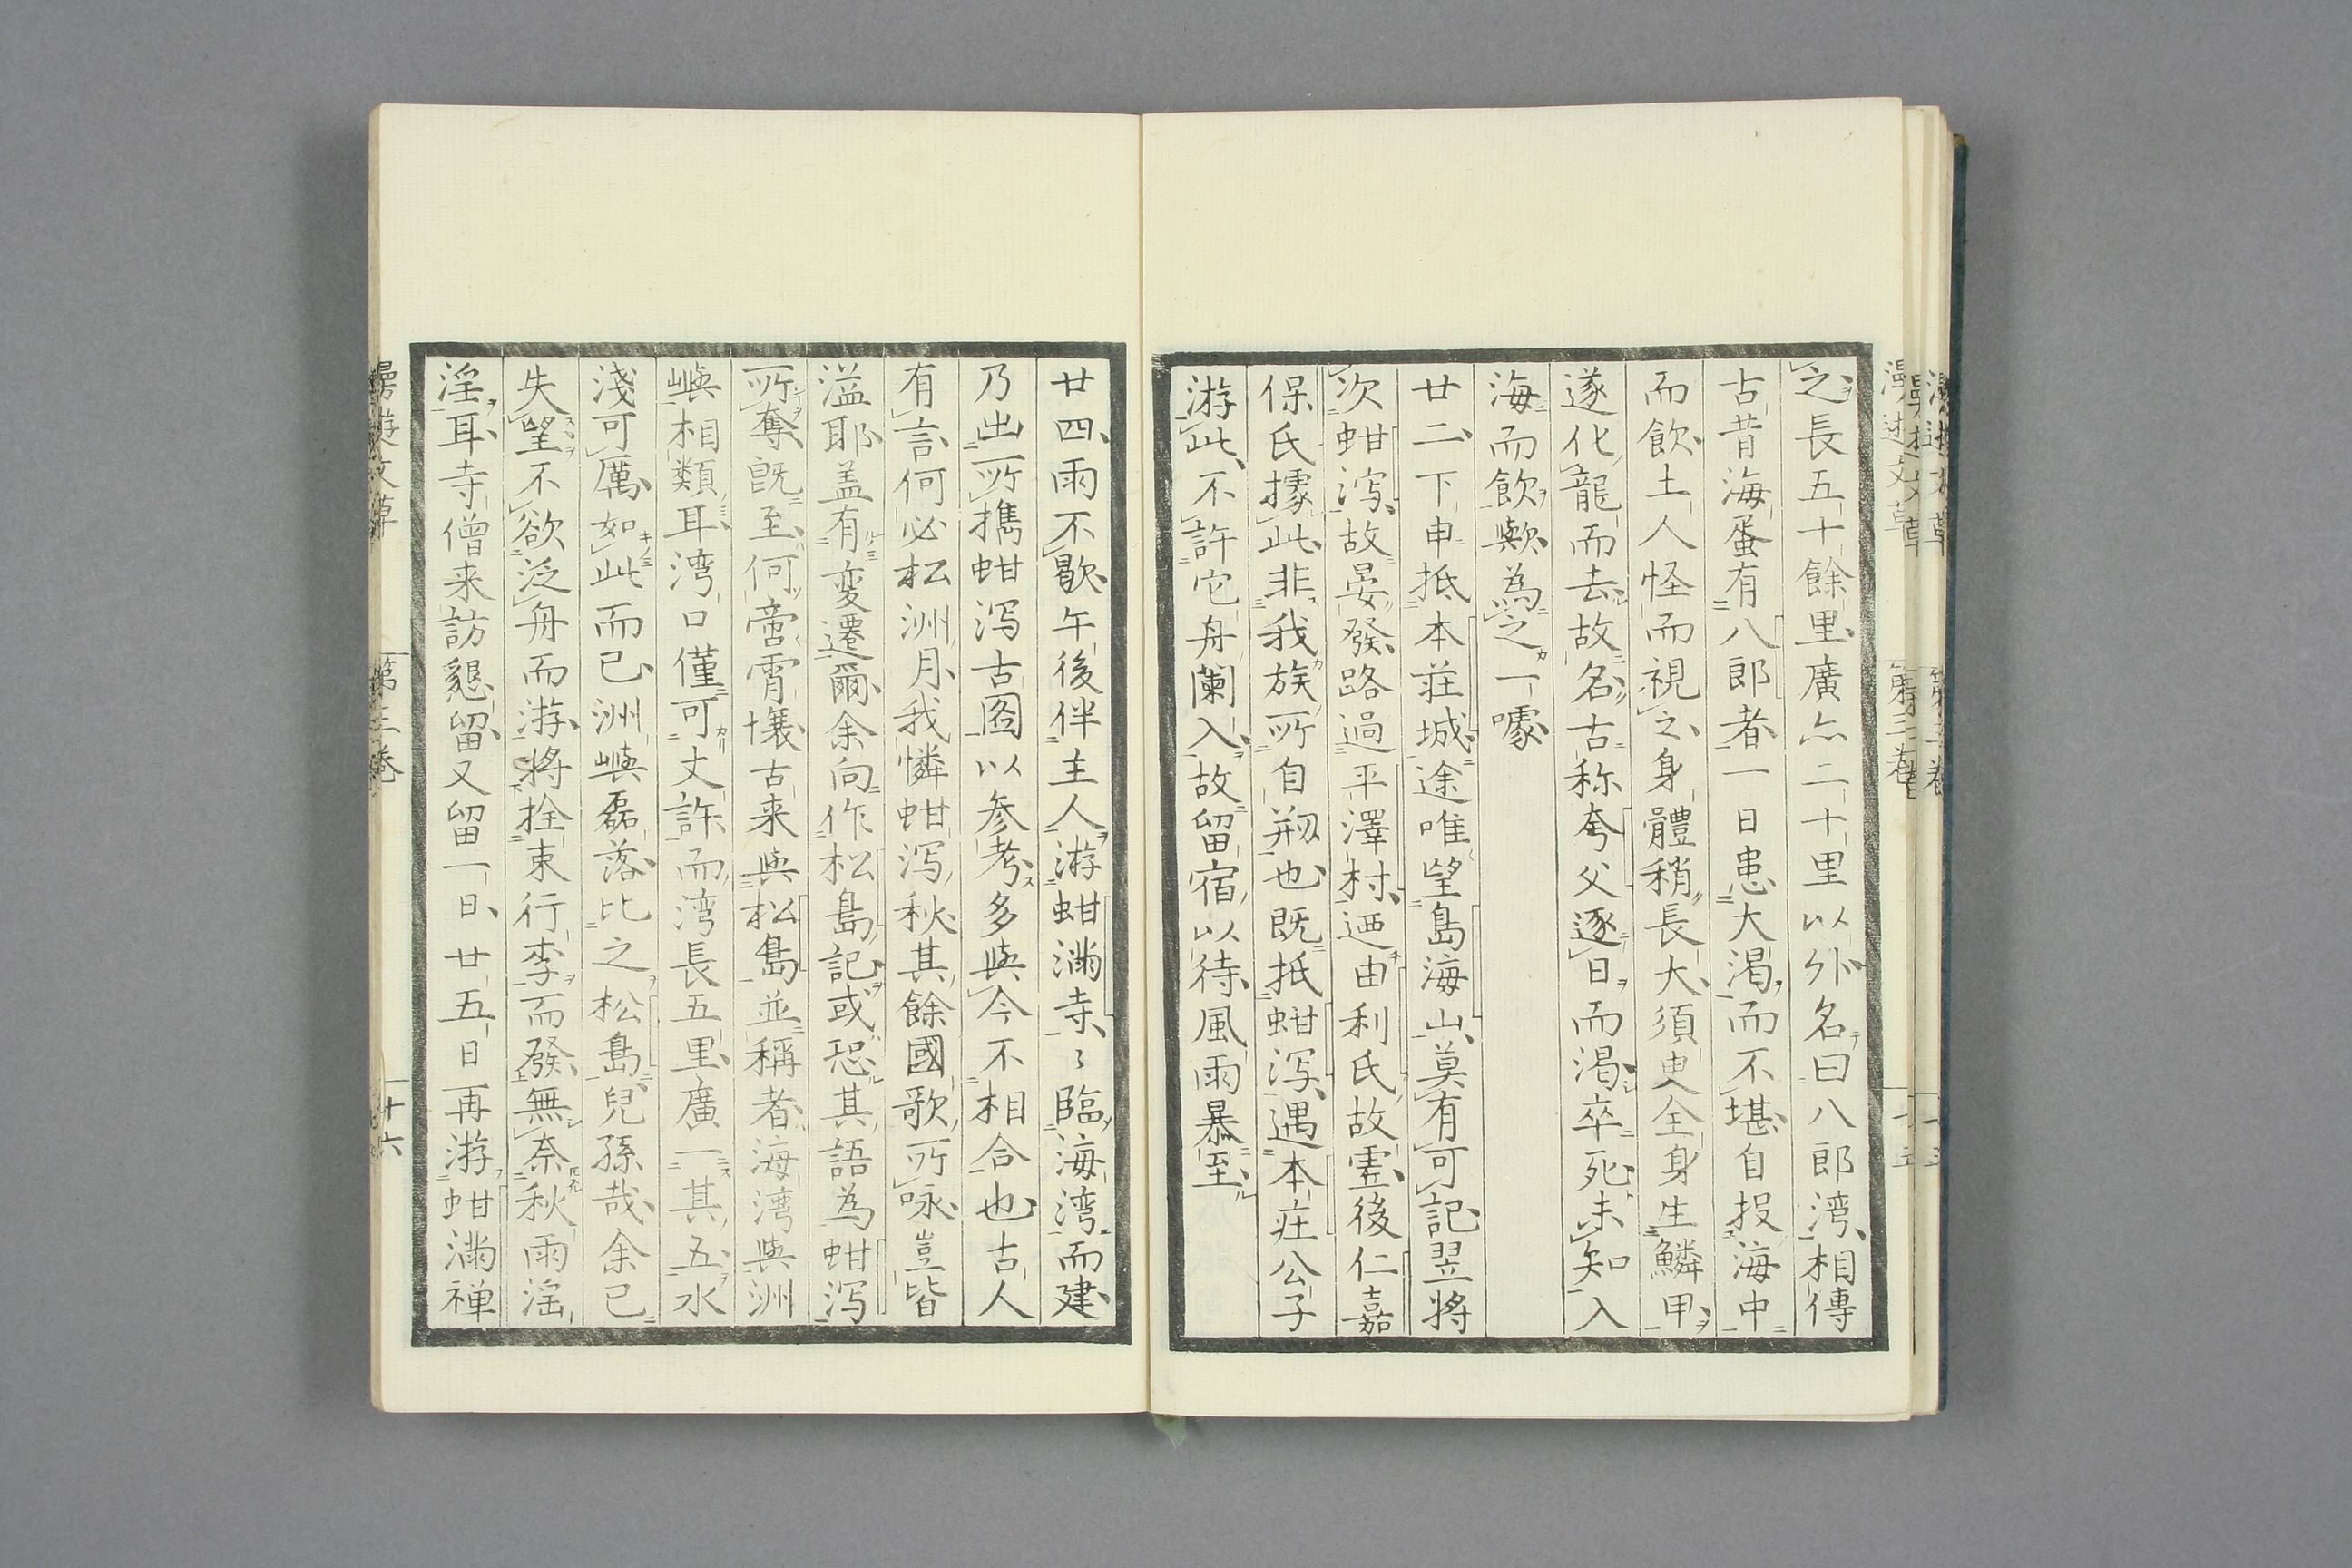 之長五十餘里廣亦二十里以外名曰八郎湾相傳
古昔海蜑有八郎者一日患大渇而不堪自投海中
而飲土人怪而視之身體稍長大須臾全身生鱗甲
遂化龍而去故名古称夸父逐日而渇卒死未知入
海而飲歟為之一噱
廿二下申抵本荘城途唯望島海山莫有可記翌将
次蚶泻故晏發路過平澤村迺由利氏故壘後仁嘉
保氏據此非我族所自剏也既抵蚶泻遇本庄公子
游此不許它舟闌入故留宿以待風雨暴至
廿四雨不歇午後伴主人游蚶滿寺〻臨海湾而建
乃出所携蚶泻古图以参考多與今不相合也古人
有言何必松洲月我憐蚶泻秋其餘國歌所咏豈皆
溢耶盖有変遷爾余向作松島記或恐其語為蚶泻
所奪既至何啻霄壤古来與松島並稱者海湾與洲
嶼相類耳湾口僅可丈許而湾長五里廣一其五水
淺可厲如此而已洲嶼磊落比之松島兒孫哉余已
失望不欲泛舟而游将拴束行李而發無奈秋雨淫
淫耳寺僧来訪懇留又留一日廿五日再游蚶滿禅
漫游文草
第三巻
十六